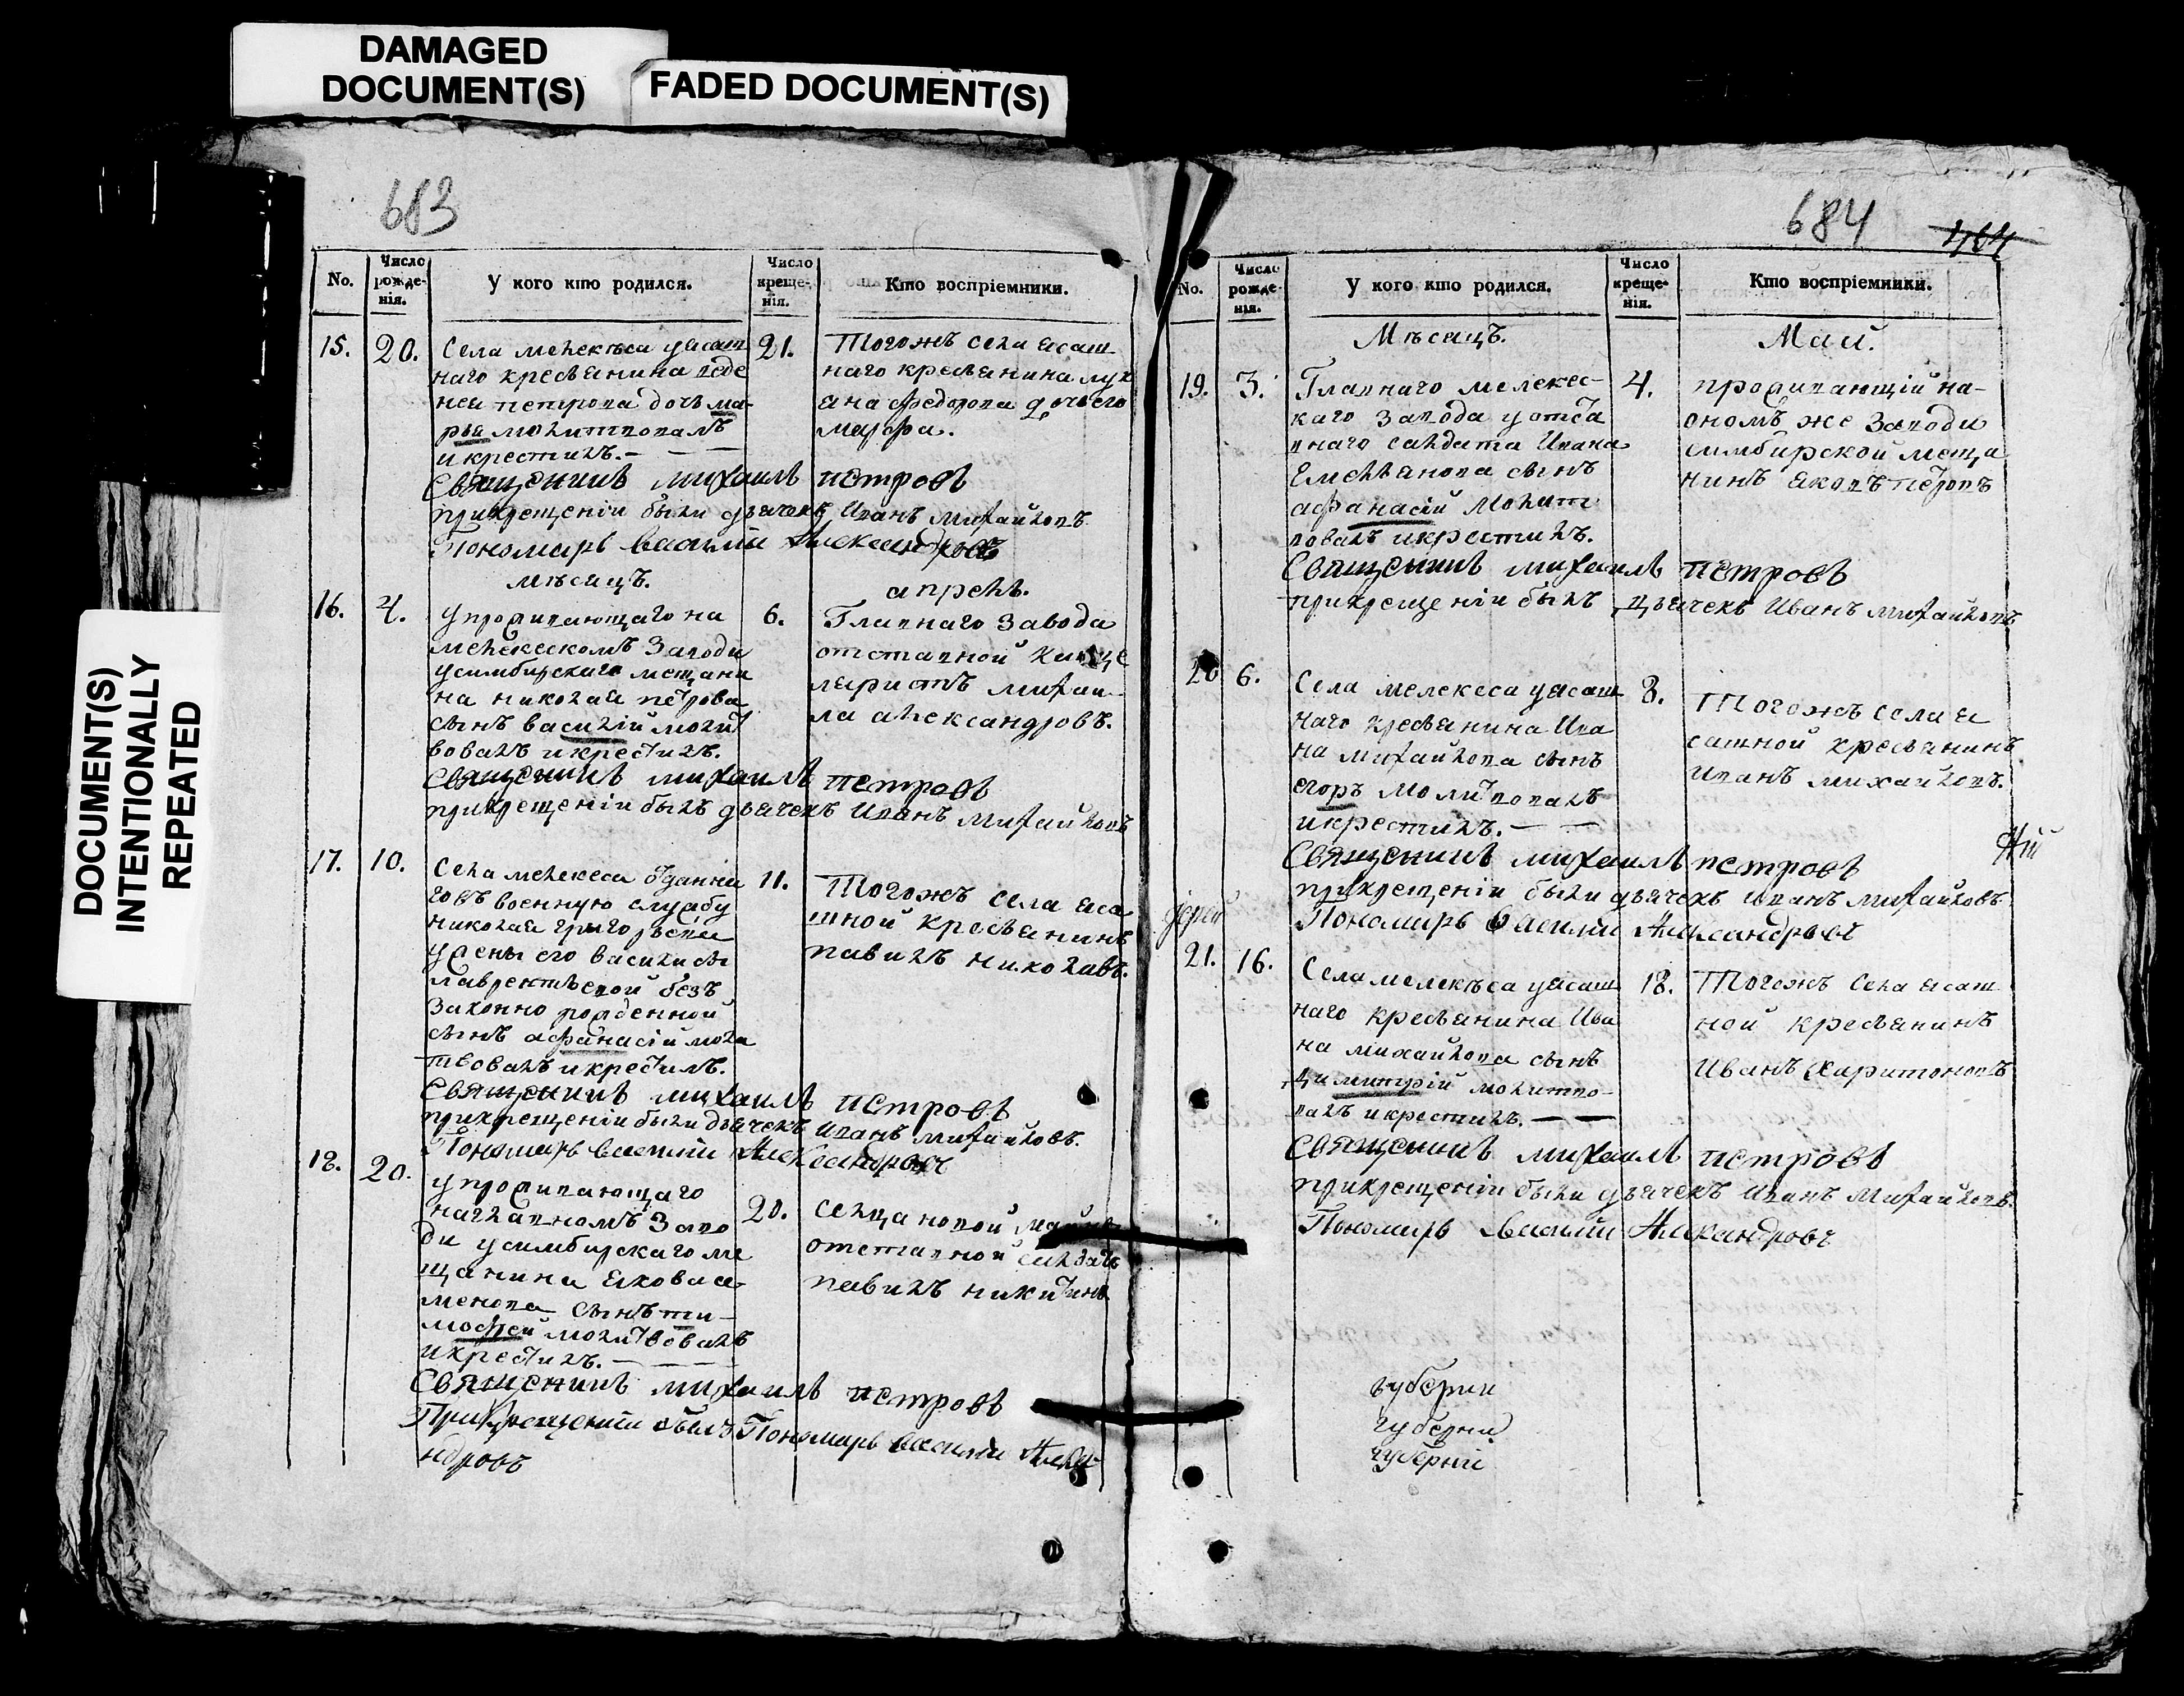 DAMAGED
DOCUMENT(S)
FADED DOCUMENT(S)
DOCUMENT(S)
INTENTIONALLY
REPEATED
683
No.
Число рожденія.
У кого кто родился.
Число крещенія.
Кто воспріемники.
15. 20.
Села мелекѣса уясаш
наго кресьянина
петрова дочь ма-
рья молитвовалъ
и крестилъ.
21.
Тогожъ села ясаш
наго кресьянина лук
яна федорова дочь его
марфа.
Священникъ михаилъ петровъ
прикрещеніи были дьячекъ Иванъ михайловъ
Пономарь василий Александровъ
мѣсяцъ. апрель.
16. 4.
упроживающаго на
мелекескомъ заводи
усимбирскаго мещани
на николая петрова
сынъ василій молит
вовалъ и крестилъ.
6.
Главнаго завода
отставной канце
ляристъ михаи
ла александровъ.
Священникъ михаилъ петровъ
прикрещеніи былъ дьячекъ Иванъ михайловъ
17. 10.
Села мелекеса
говъ военную службу
николая григорьева
ужены его василисы
лаврентьевой безъ
законно рожденной
сынъ афанасій моли
твовалъ и крестилъ.
11.
Тогожъ села яса
шной кресьянинъ
павилъ николавъ.
Священникъ михаилъ петровъ
прикрещеніи были дьячекъ Иванъ михайловъ.
Пономарь василий Александровъ
18. 20.
упроживающаго
наглавномъ заво
ди усимбирскаго ме
щанина якова се
менова сынъ ти-
мофей молитвовалъ
и крестилъ.
20.
сельца новой
отставной салдатъ
павилъ никитинъ
Священникъ михаилъ петровъ
Прикрещеніи былъ Пономарь василий Алекса
ндровъ
684
464
No.
Число рожденія.
У кого кто родился.
Число крещенія.
Кто воспріемники.
Мѣсяцъ. Маи.
19. 3.
Главнаго мелекес-
каго завода уотста
внаго салдата Ивана
Емельянова сынъ
афанасій молит
вовалъ и крестилъ.
4.
проживающій на-
ономъ же заводи
симбирской меща
нинъ яковъ петровъ
Священникъ михаилъ петровъ
прикрещеніи былъ дьячекъ Иванъ михайловъ
20 6.
Села мелекеса уясаш
наго кресьянина Ива
на михайлова сынъ
егоръ молитвовалъ
и крестилъ.
8.
Тогожъ села я
сашной кресьянинъ
Иванъ михайловъ.
Священникъ михаилъ петровъ
прикрещеніи были дьячекъ Иванъ михайловъ
Пономарь Василий Александровъ
21. 16.
Села мелекѣса уясаш
наго кресьянина Ива
на михайлова сынъ
димитрій молитво-
валъ и крестилъ.
18.
Тогожъ села ясаш
ной кресьянинъ
Иванъ Харитоновъ
Священникъ михаилъ петровъ
прикрещеніи были дьячекъ Иванъ михайловъ.
Пономарь Василий Александровъ
губерни
губерни
губерніи